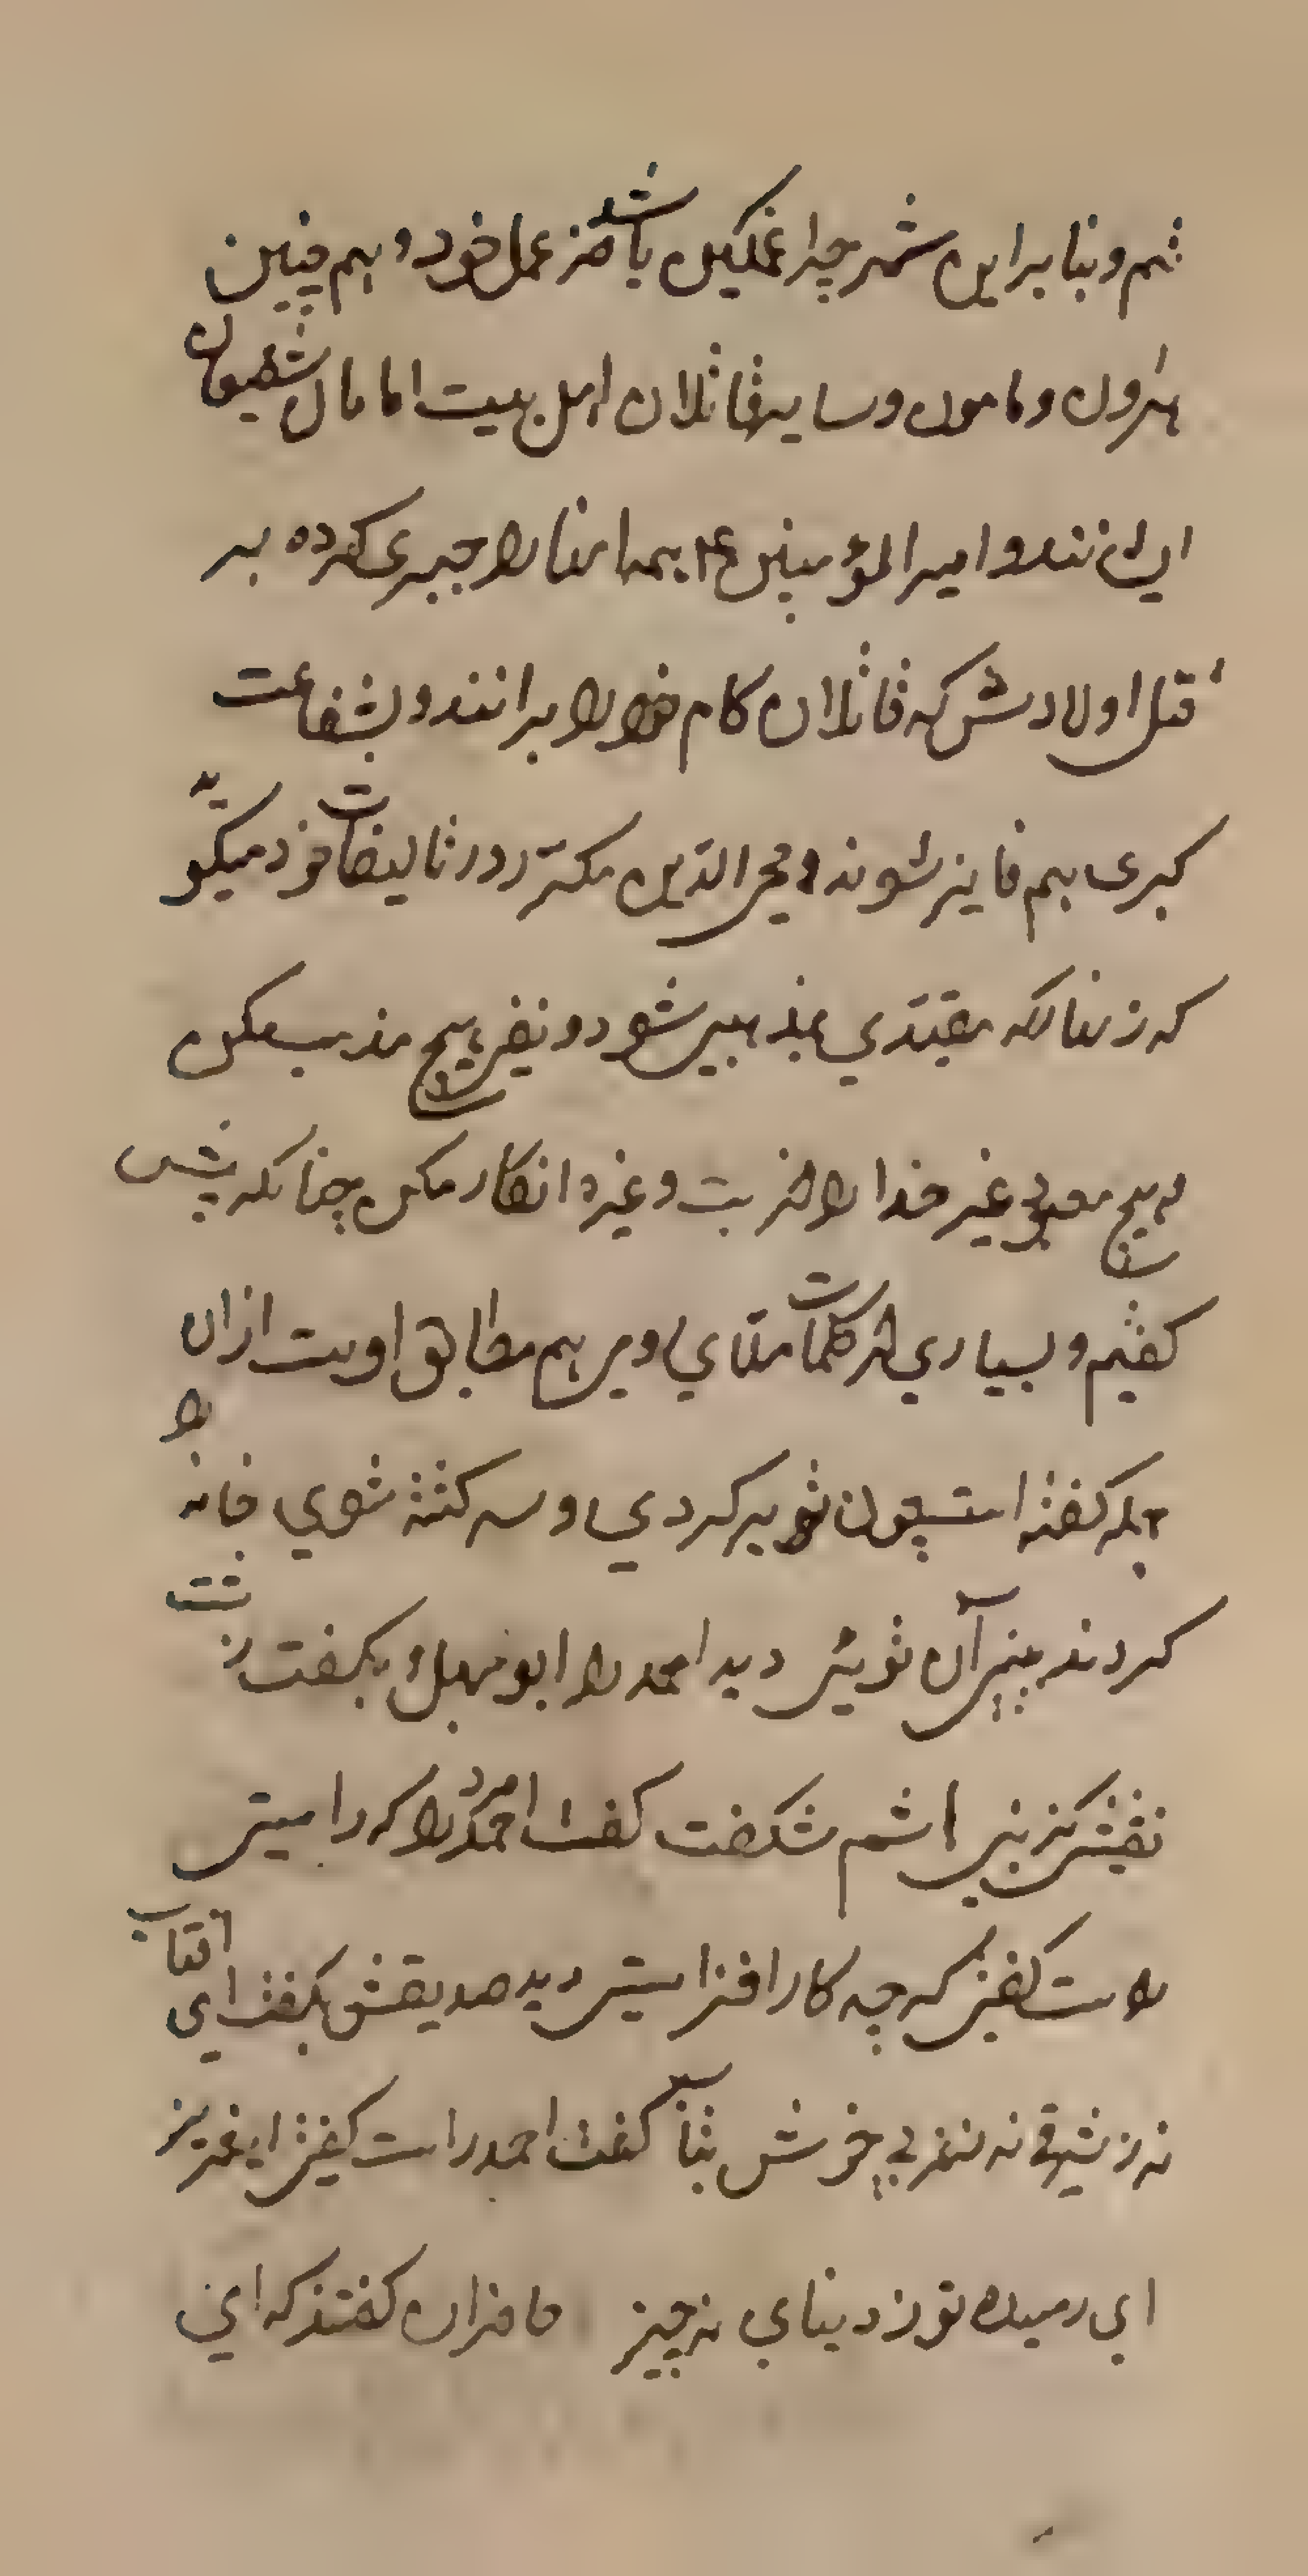 شم و بنا براین شمر چرا غمکین باشد از عمل خود و هم چنین
هرون و مامون و سایر قاتلان اهل بیت امامان شفیعان
ایشانند و امیر المؤمنین ع بهمه اینها را جبری کرده بر
قتل اولادش که قاتلان کام خود را برانند و بشفاعت
کبری هم فایز شوند و محی الدین مکرّر در تالیفات خود میکوید
که زنهار که مقیّد بمذهبی مشو و نفی هیچ مذهب مکن
و هیچ معبودی غیر خدا را از بت و غیره انکار مکن چنانکه پیش
کفتیم و بسیاری از کلمات ملّای رومی هم مطابق اوست ازان
جمله کفته است چون تو برکردی و سرکشته شوی خانه را
کردنده بینی آن تویی دید احمد را ابوجهل و بکفت زشت
نقشی کز بنی هاشم شکفت کفت احمد مر ورا که راستی
راست کفتی کرچه کار افزاستی دید صدیقش بکفت ای آفتاب
نه ز شرقی نه ز غربی خوش بتاب کفت احمد راست کفتی ای عزیز
ای رهیده تو ز دنیای نه چیز حاضران کفتند که ای